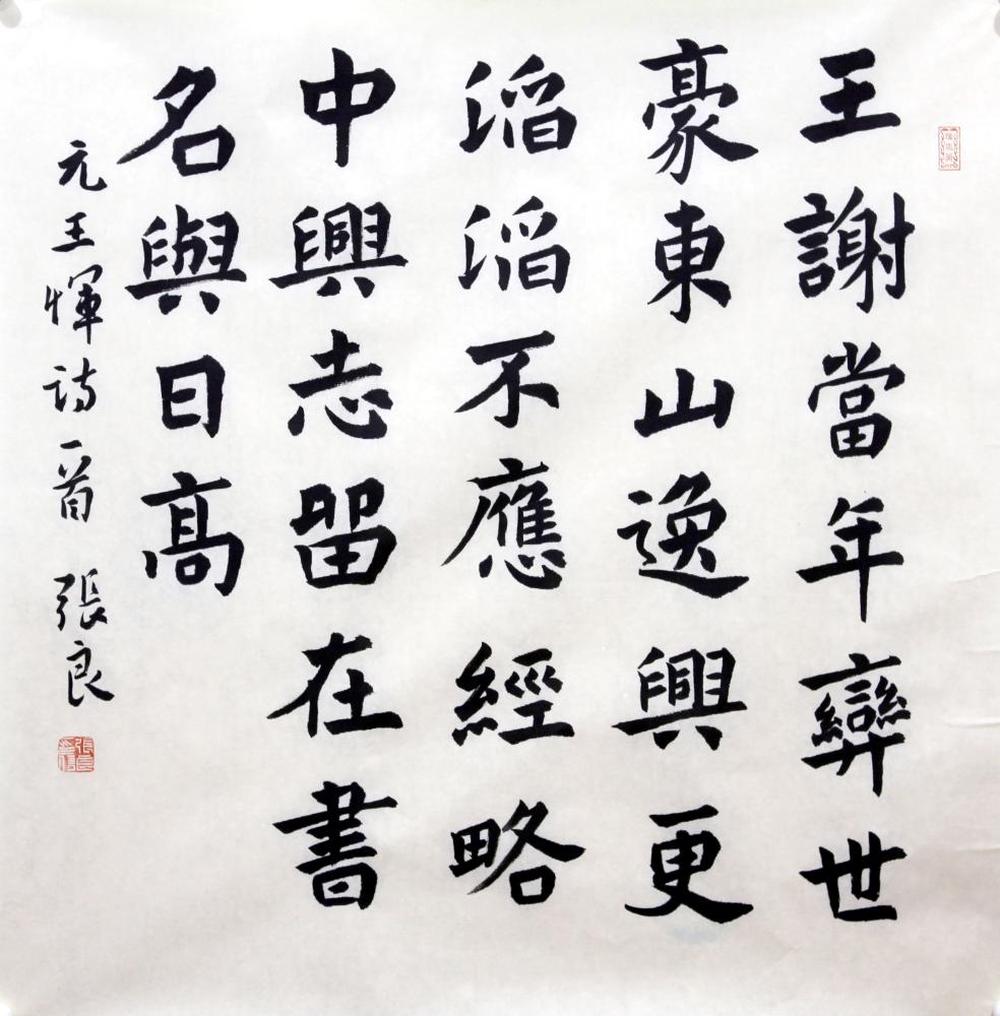 王謝當年世
豪東山逸興更
滔滔不應經略
中興志留在書
名與日高
元王惲詩一首 張良